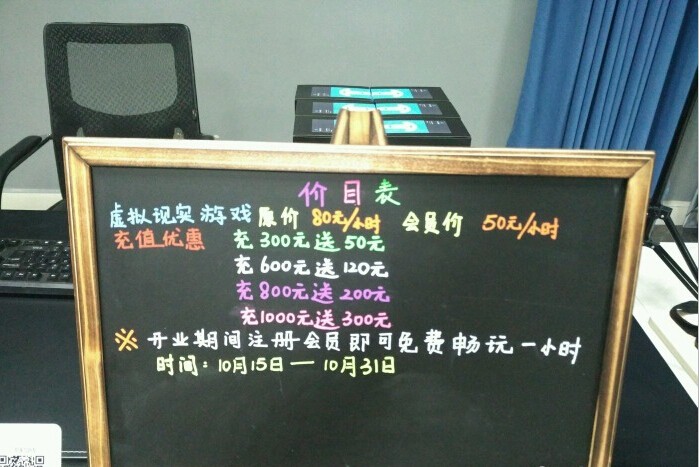 价目表
虚拟现实游戏 原价 80元/小时 会员价 50元/小时
充值优惠 充300元送50元
充600元送120元
充800元送200元
充1000元送300元
※开业期间注册会员即可免费畅玩一小时
时间:10月15日—10月31日